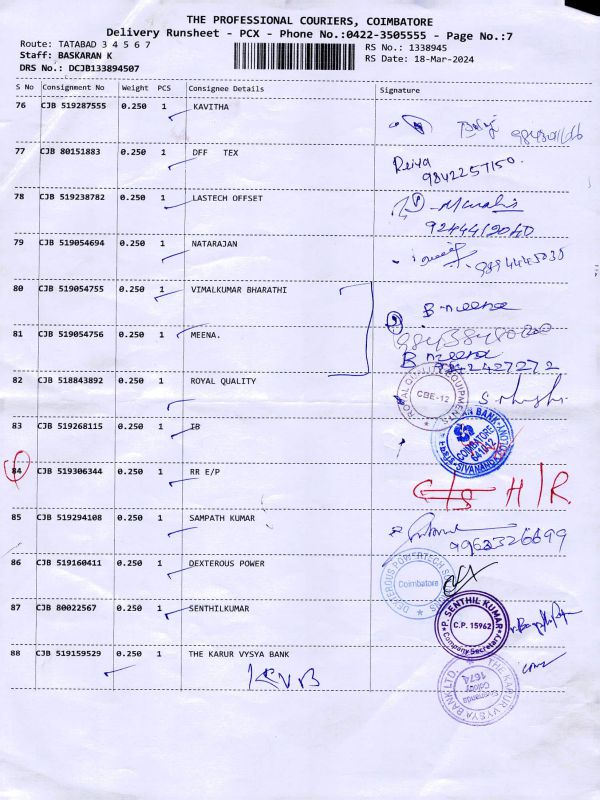 THE PROFESSIONAL COURIERS, COIMBATORE
Delivery Runsheet - PCX - Phone No.:0422-3505555 - Page No.:7
Route: TATABAD 3 4 5 6 7
RS No.: 1338945
Staff: BASKARAN K
RS Date: 18-Mar-2024
DRS No.: DCJB133894507
S No Consignment No Weight PCS Consignee Details Signature
76 CJB 519287555 0.250 1 KAVITHA
77 CJB 80151883 0.250 1 DFF TEX
9842257150.
78 CJB 519238782 0.250 1 LASTECH OFFSET
79 CJB 519054694 0.250 1 NATARAJAN
9894445035
80 CJB 519054755 0.250 1 VIMALKUMAR BHARATHI
B-meena
81 CJB 519054756 0.250 1 MEENA.
B meena
9842427272
82 CJB 518843892 0.250 1 ROYAL QUALITY
ROYAL QUALITY EQUIPMENTS
CBE-12
83 CJB 519268115 0.250 1 IB
COIMBATORE
641012
84 CJB 519306344 0.250 1 RR E/P
H/R.
85 CJB 519294108 0.250 1 SAMPATH KUMAR
9963326699
86 CJB 519160411 0.250 1 DEXTEROUS POWER
Coimbatore
87 CJB 80022567 0.250 1 SENTHILKUMAR
P. SENTHIL KUMAR
C.P. 15962
Company Secretary
88 CJB 519159529 0.250 1 THE KARUR VYSYA BANK
KVB
THE KARUR VYSYA BANK LTD
1674